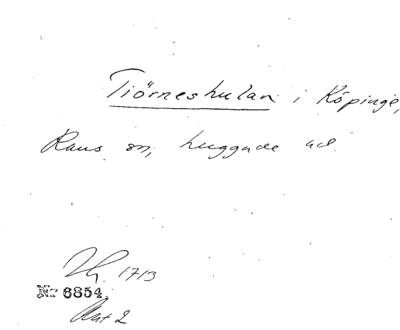 Tiörneshulan i Köpinge,
Raus sn, huggade ut
Th. 1713
Nr 6854
Akt 2